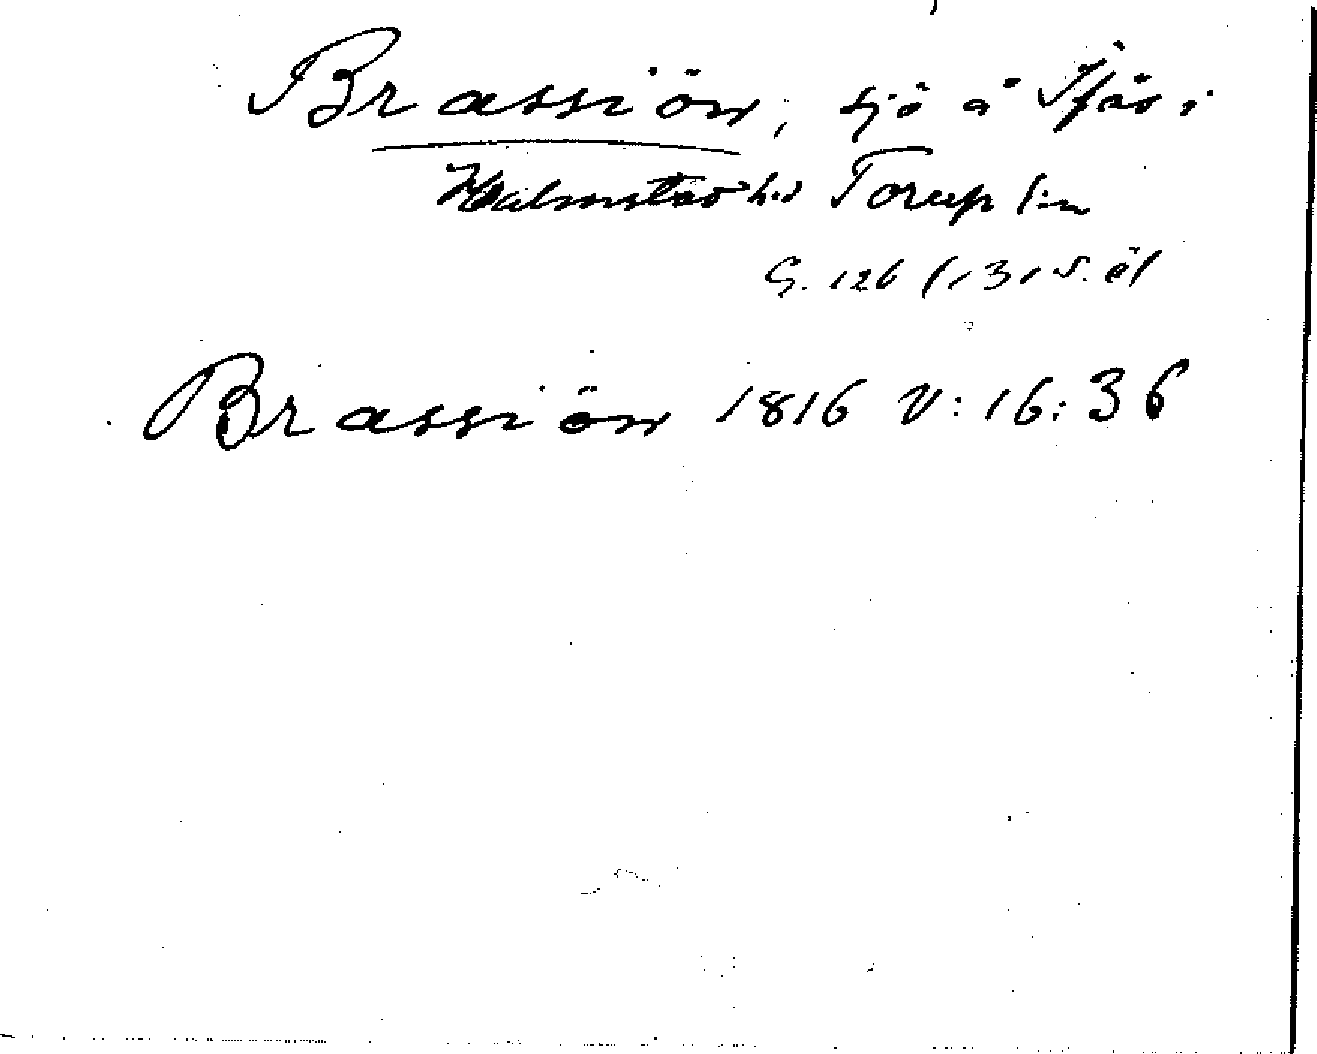 Brassiön, sjö å Tjärs i
Halmstad h:d Torup s:n
G. 126 (1315. öl
Brassiön 1816 V:16:36